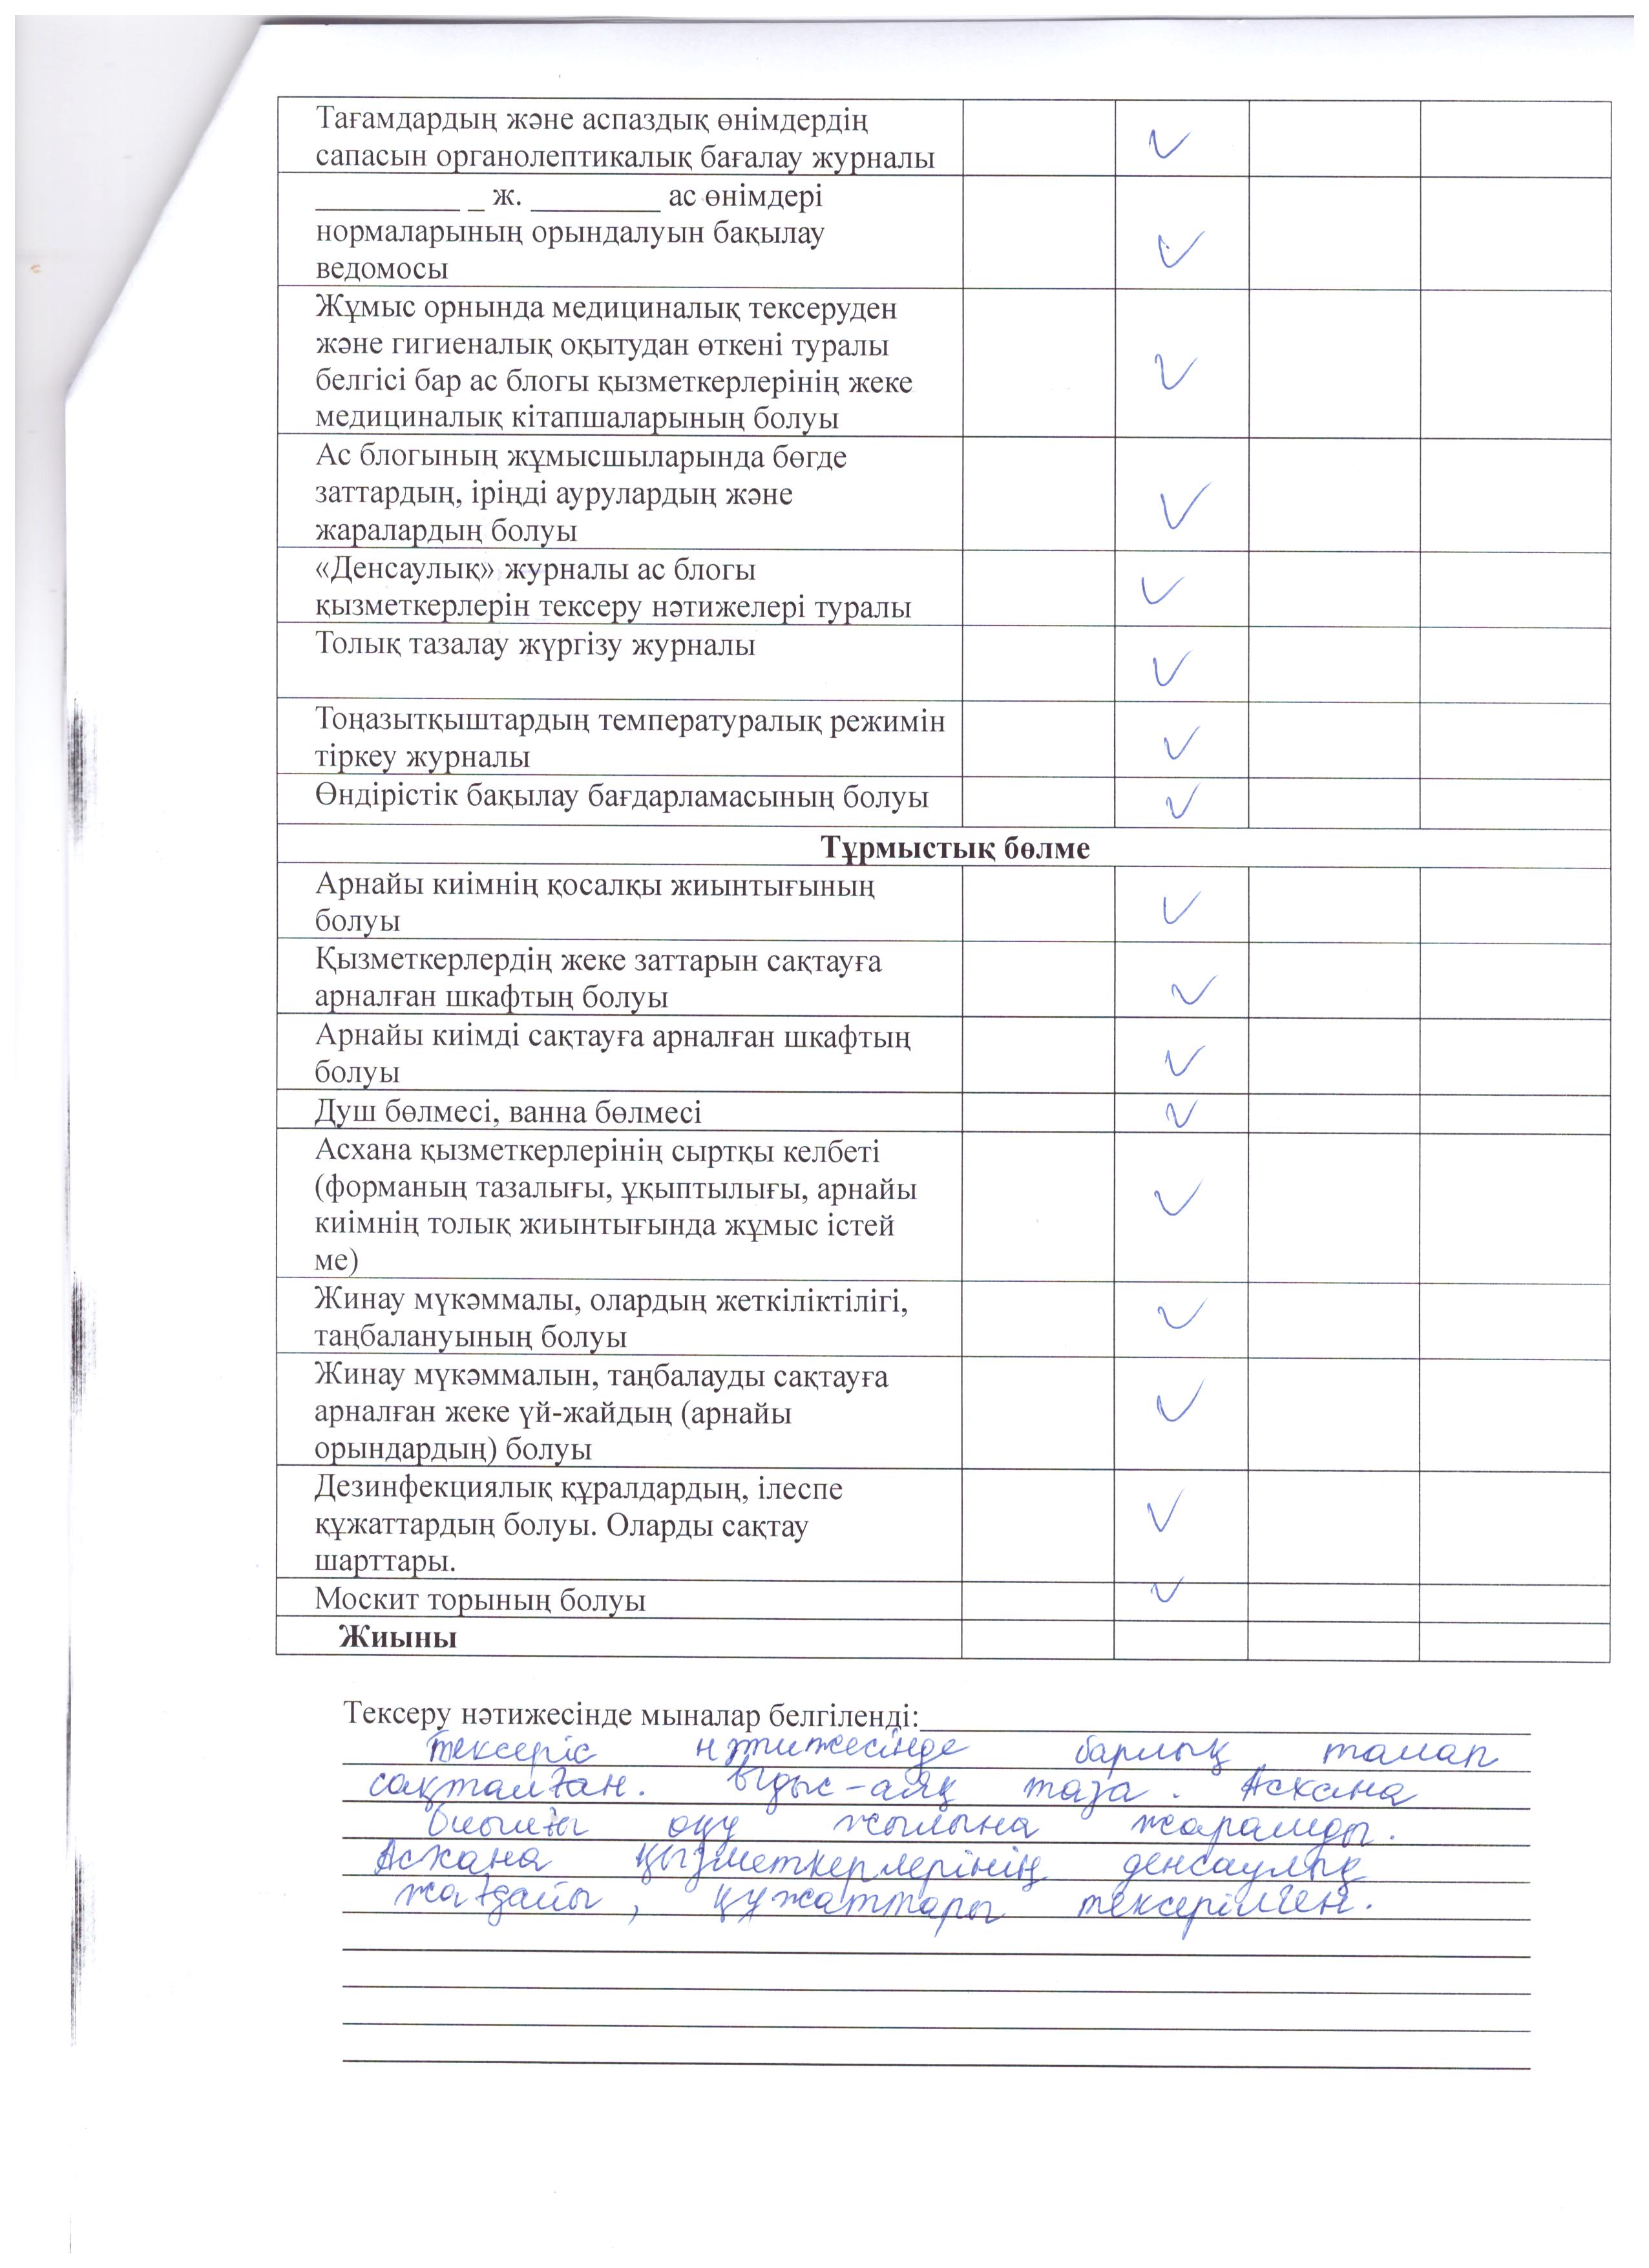 Тағамдардың және аспаздық өнімдердің
сапасын органолептикалық бағалау журналы ✓
_________ _ ж. ________ ас өнімдері
нормаларының орындалуын бақылау ✓
ведомосы
Жұмыс орнында медициналық тексеруден
және гигиеналық оқытудан өткені туралы
белгісі бар ас блогы қызметкерлерінің жеке ✓
медициналық кітапшаларының болуы
Ас блогының жұмысшыларында бөгде
заттардың, іріңді аурулардың және ✓
жаралардың болуы
«Денсаулық» журналы ас блогы
қызметкерлерін тексеру нәтижелері туралы ✓
Толық тазалау жүргізу журналы ✓
Тоңазытқыштардың температуралық режимін
тіркеу журналы ✓
Өндірістік бақылау бағдарламасының болуы ✓
Тұрмыстық бөлме
Арнайы киімнің қосалқы жиынтығының
болуы ✓
Қызметкерлердің жеке заттарын сақтауға
арналған шкафтың болуы ✓
Арнайы киімді сақтауға арналған шкафтың
болуы ✓
Душ бөлмесі, ванна бөлмесі ✓
Асхана қызметкерлерінің сыртқы келбеті
(форманың тазалығы, ұқыптылығы, арнайы ✓
киімнің толық жиынтығында жұмыс істей
ме)
Жинау мүкәммалы, олардың жеткіліктілігі,
таңбалануының болуы ✓
Жинау мүкәммалын, таңбалауды сақтауға
арналған жеке үй-жайдың (арнайы ✓
орындардың) болуы
Дезинфекциялық құралдардың, ілеспе
құжаттардың болуы. Оларды сақтау ✓
шарттары.
Москит торының болуы ✓
Жиыны
Тексеру нәтижесінде мыналар белгіленді:
Тексеріс нәтижесінде барлық талап
сақталған. Ыдыс-аяқ таза. Асхана
биылғы оқу жылына жарамды.
Асхана қызметкерлерінің денсаулық
жағдайы, құжаттары тексерілген.